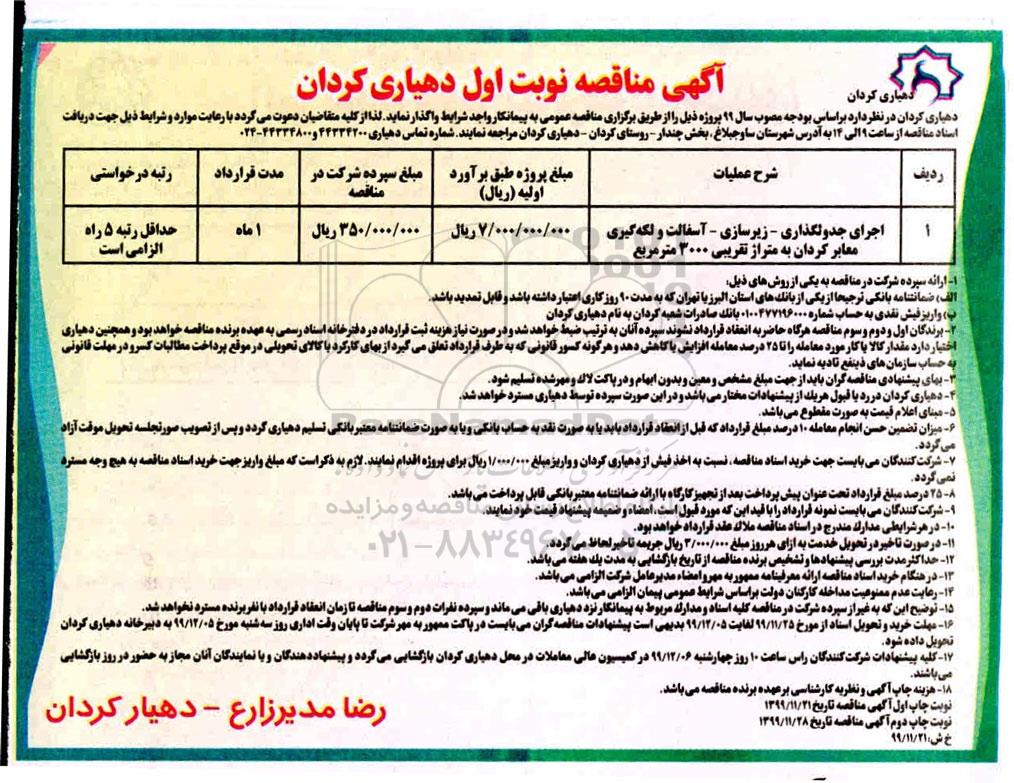 دهیاری کردان
آگهی مناقصه نوبت اول دهیاری کردان
دهیاری کردان در نظر دارد براساس بودجه مصوب سال ۹۹ پروژه ذیل را از طریق برگزاری مناقصه عمومی به پیمانکار واجد شرایط واگذار نماید. لذا از کلیه متقاضیان دعوت می‌گردد با رعایت موارد و شرایط ذیل جهت دریافت
اسناد مناقصه از ساعت ۹ الی ۱۴ به آدرس شهرستان ساوجبلاغ، بخش چندار – روستای کردان – دهیاری کردان مراجعه نمایند. شماره تماس دهیاری ۴۴۳۳۴۲۰۰ و ۴۴۳۳۴۸۰۰-۰۲۴
ردیف شرح عملیات مبلغ پروژه طبق برآورد اولیه (ریال) مبلغ سپرده شرکت در مناقصه مدت قرارداد رتبه درخواستی
۱ اجرای جدولگذاری – زیرسازی – آسفالت و لکه‌گیری معابر کردان به متراژ تقریبی ۳۰۰۰ مترمربع ۷/۰۰۰/۰۰۰/۰۰۰ ریال ۳۵۰/۰۰۰/۰۰۰ ریال ۱ ماه حداقل رتبه ۵ راه الزامی است
۱- ارائه سپرده شرکت در مناقصه به یکی از روش های ذیل:
الف) ضمانتنامه بانکی ترجیحا از یکی از بانک‌های استان البرز یا تهران که به مدت ۹۰ روز کاری اعتبار داشته باشد و قابل تمدید باشد.
ب) واریز فیش نقدی به حساب شماره ۰۱۰۰۴۷۷۱۹۶۰۰۰ بانک صادرات شعبه کردان به نام دهیاری کردان
۲- برندگان اول و دوم و سوم مناقصه هرگاه حاضر به انعقاد قرارداد نشوند سپرده آنان به ترتیب ضبط خواهد شد و در صورت نیاز هزینه ثبت قرارداد در دفترخانه اسناد رسمی به عهده برنده مناقصه خواهد بود و همچنین دهیاری
اختیار دارد مقدار کالا یا کار مورد معامله را تا ۲۵ درصد معامله افزایش یا کاهش دهد و هرگونه کسور قانونی که به طرف قرارداد تعلق می گیرد از بهای کارکرد یا کالای تحویلی در موقع پرداخت مطالبات کسر و در مهلت قانونی
به حساب سازمان های ذینفع تادیه نماید.
۳- بهای پیشنهادی مناقصه گران باید از جهت مبلغ مشخص و معین و بدون ابهام و در پاکت لاک و مهر شده تسلیم شود.
۴- دهیاری کردان در رد یا قبول هریک از پیشنهادات مختار می‌باشد و در این صورت سپرده توسط دهیاری مسترد خواهد شد.
۵- مبنای اعلام قیمت به صورت مقطوع می‌باشد.
۶- میزان تضمین حسن انجام معامله ۱۰ درصد مبلغ قرارداد که قبل از انعقاد قرارداد باید یا به صورت نقد به حساب بانکی و یا به صورت ضمانتنامه معتبر بانکی تسلیم دهیاری گردد و پس از تصویب صورتجلسه تحویل موقت آزاد
می‌گردد.
۷- شرکت کنندگان می بایست جهت خرید اسناد مناقصه، نسبت به اخذ فیش از دهیاری کردان و واریز مبلغ ۱/۰۰۰/۰۰۰ ریال برای پروژه اقدام نمایند. لازم به ذکر است که مبلغ واریز جهت خرید اسناد مناقصه به هیچ وجه مسترد
نمی‌گردد.
۸- ۲۵ درصد مبلغ قرارداد تحت عنوان پیش پرداخت بعد از تجهیز کارگاه با ارائه ضمانتنامه معتبر بانکی قابل پرداخت می‌باشد.
۹- شرکت کنندگان می بایست نمونه قرارداد را با قید این که مورد قبول است، امضاء و ضمیمه پیشنهاد قیمت خود نمایند.
۱۰- در هر شرایطی مدارک مندرج در اسناد مناقصه ملاک عقد قرارداد خواهد بود.
۱۱- در صورت تاخیر در تحویل خدمت به ازای هر روز مبلغ ۳/۰۰۰/۰۰۰ ریال جریمه تاخیر لحاظ می گردد.
۱۲- حداکثر مدت بررسی پیشنهادها و تشخیص برنده مناقصه از تاریخ بازگشایی به مدت یک هفته می‌باشد.
۱۳- در هنگام خرید اسناد مناقصه ارائه معرفینامه ممهور به مهر و امضاء مدیرعامل شرکت الزامی می باشد.
۱۴- رعایت عدم ممنوعیت مداخله کارکنان دولت براساس شرایط عمومی پیمان الزامی می‌باشد.
۱۵- توضیح این که به غیر از سپرده شرکت در مناقصه کلیه اسناد و مدارک مربوط به پیمانکار نزد دهیاری باقی می ماند و سپرده نفرات دوم و سوم مناقصه تا زمان انعقاد قرارداد با نفر برنده مسترد نخواهد شد.
۱۶- مهلت خرید و تحویل اسناد از مورخ ۹۹/۱۱/۲۵ لغایت ۹۹/۱۲/۰۵ بدیهی است پیشنهادات مناقصه‌گران می‌بایست در پاکت ممهور به مهر شرکت تا پایان وقت اداری روز سه شنبه مورخ ۹۹/۱۲/۰۵ به دبیرخانه دهیاری کردان
تحویل داده شود.
۱۷- کلیه پیشنهادات شرکت کنندگان راس ساعت ۱۰ روز چهارشنبه ۹۹/۱۲/۰۶ در کمیسیون عالی معاملات در محل دهیاری کردان بازگشایی می‌گردد و پیشنهاددهندگان و یا نمایندگان آنان مجاز به حضور در روز بازگشایی
می‌باشند.
۱۸- هزینه چاپ آگهی و نظریه کارشناسی برعهده برنده مناقصه می‌باشد.
نوبت چاپ اول آگهی مناقصه تاریخ ۱۳۹۹/۱۱/۲۱
نوبت چاپ دوم آگهی مناقصه تاریخ ۱۳۹۹/۱۱/۲۸
خ ش: ۹۹/۱۱/۲۱
رضا مدیرزارع – دهیار کردان